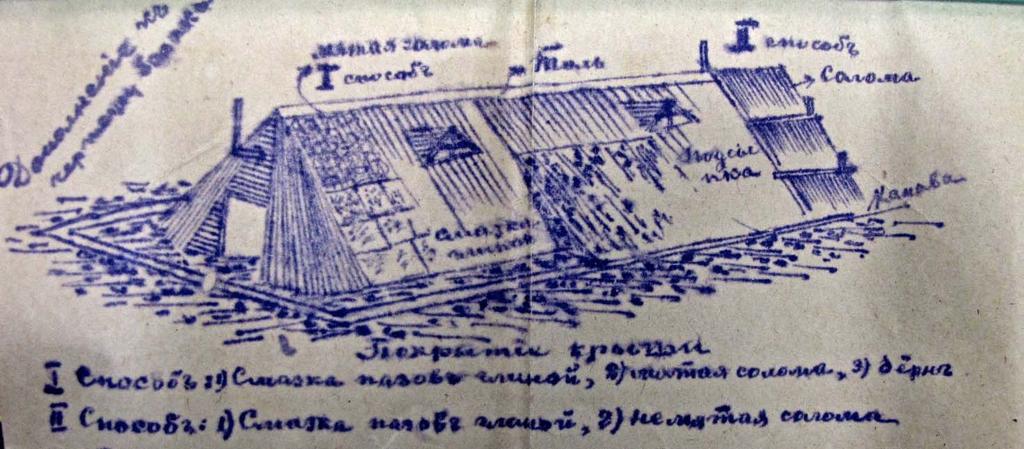 Дополненіе къ
чертежу
мятая солома
I способъ
Толь
II способъ
Солома
Подсы
пка
Канава
Смазка
глиной
Покрытіе крыши
I Способъ: 1) Смазка пазовъ глиной, 2) мятая солома, 3) дёрнъ
II Способъ: 1) Смазка пазовъ глиной, 2) немятая солома